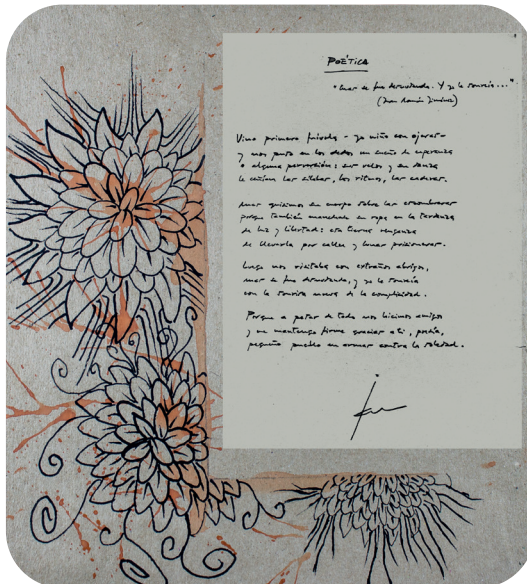 POÉTICA
"Mas se fue desnudando. Y yo le sonreía..."
(Juan Ramón Jiménez)
Vino primero frívola - yo niño con ojeras -
y nos puso en los dedos un sueño de esperanza
o alguna perversión: sus velos y su danza
le ceñían las sílabas, los ritmos, las caderas.
Mas quisimos su cuerpo sobre las escombreras
porque también manchase su ropa en la tardanza
de luz y libertad: esa tierna venganza
de llevarla por calles y lunas prisioneras.
Luego nos visitaba con extraños abrigos,
mas se fue desnudando, y yo le sonreía
con la sonrisa nueva de la complicidad.
Porque a pesar de todo nos hicimos amigos
y me mantengo firme gracias a ti, poesía,
pequeño pueblo en armas contra la soledad.